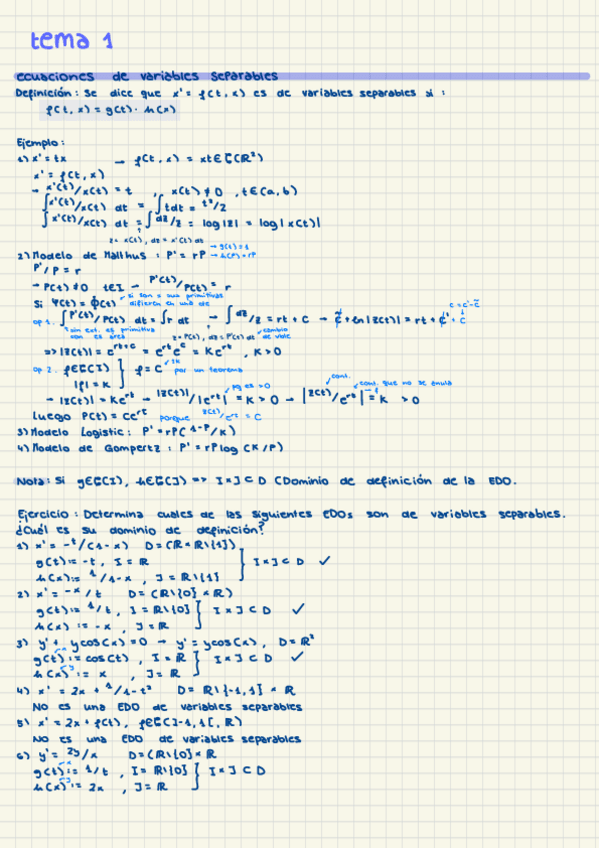 tema 1
ecuaciones de variables separables
Definición: Se dice que x' = f(t,x) es de variables separables si :
f(t,x) = g(t) · h(x)
Ejemplo:
1) x' = tx → f(t,x) = xt ∈ C(R²)
x' = f(t,x)
→ x'(t)/x(t) = t , x(t) ≠ 0 , t ∈ (a,b)
∫ x'(t)/x(t) dt = ∫ t dt = t²/2
∫ x'(t)/x(t) dt = ∫ dz/z = log|z| = log|x(t)|
z = x(t), dz = x'(t) dt
2) Modelo de Malthus : P' = rP → g(t) = 1
→ h(P) = rP
P'/P = r
→ P(t) ≠ 0 t ∈ I → P'(t)/P(t) = r
Si Ψ(t) = Φ(t) → si son 2 sus primitivas
difieren en una cte
op 1. ∫ P'(t)/P(t) dt = ∫ r dt → ∫ dz/z = rt + C → c̃ + ln|z(t)| = rt + c' + C
c = c' - c̃
sin ext. es primitiva
con es área
z = P(t), dz = P'(t) dt cambio
de vble
=> |z(t)| = e^(rt+c) = e^(rt) e^c = K e^(rt) , K > 0
op 2. f ∈ C(I) } f = C por un teorema
|f| = K
→ |z(t)| = K e^(rt) → |z(t)|/|e^(rt)| = K > 0 → |z(t)/e^(rt)| = K > 0
cont. cont. que no se anula
luego P(t) = C e^(rt) porque z(t)/e^(rt) = C
3) Modelo Logistic : P' = rP(1-P/K)
4) Modelo de Gompertz : P' = rP log(K/P)
Nota: Si g ∈ C(I), h ∈ C(J) => I × J ⊂ D (Dominio de definición de la EDO.
Ejercicio : Determina cuales de las siguientes EDOs son de variables separables.
¿Cuál es su dominio de definición?
1) x' = -t/(1-x) D = (R × R\{1})
g(t) := -t , I = R } I × J ⊂ D ✓
h(x) := 1/1-x , J = R\{1}
2) x' = -x/t D = (R\{0} × R)
g(t) := 1/t , I = R\{0} } I × J ⊂ D ✓
h(x) := -x , J = R
3) y' + y cos(x) = 0 → y' = y cos(x) , D = R²
g(t) := cos(t) , I = R } I × J ⊂ D ✓
h(x) := x , J = R
4) x' = 2x + 1/1-t² D = R\{-1,1} × R
No es una EDO de variables separables
5) x' = 2x + f(t), f ∈ C(]-1,1[, R)
No es una EDO de variables separables
6) y' = 2y/x D = (R\{0} × R
g(t) := 1/t , I = R\{0} } I × J ⊂ D
h(x) := 2x , J = R